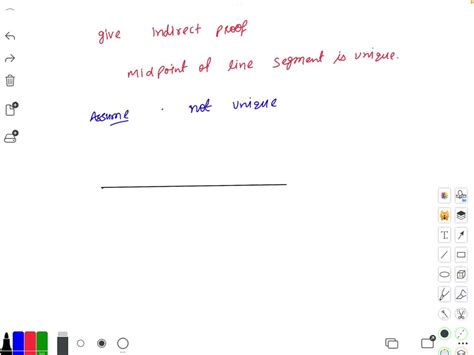 give indirect proof
midpoint of line segment is unique.
Assume . not unique
T